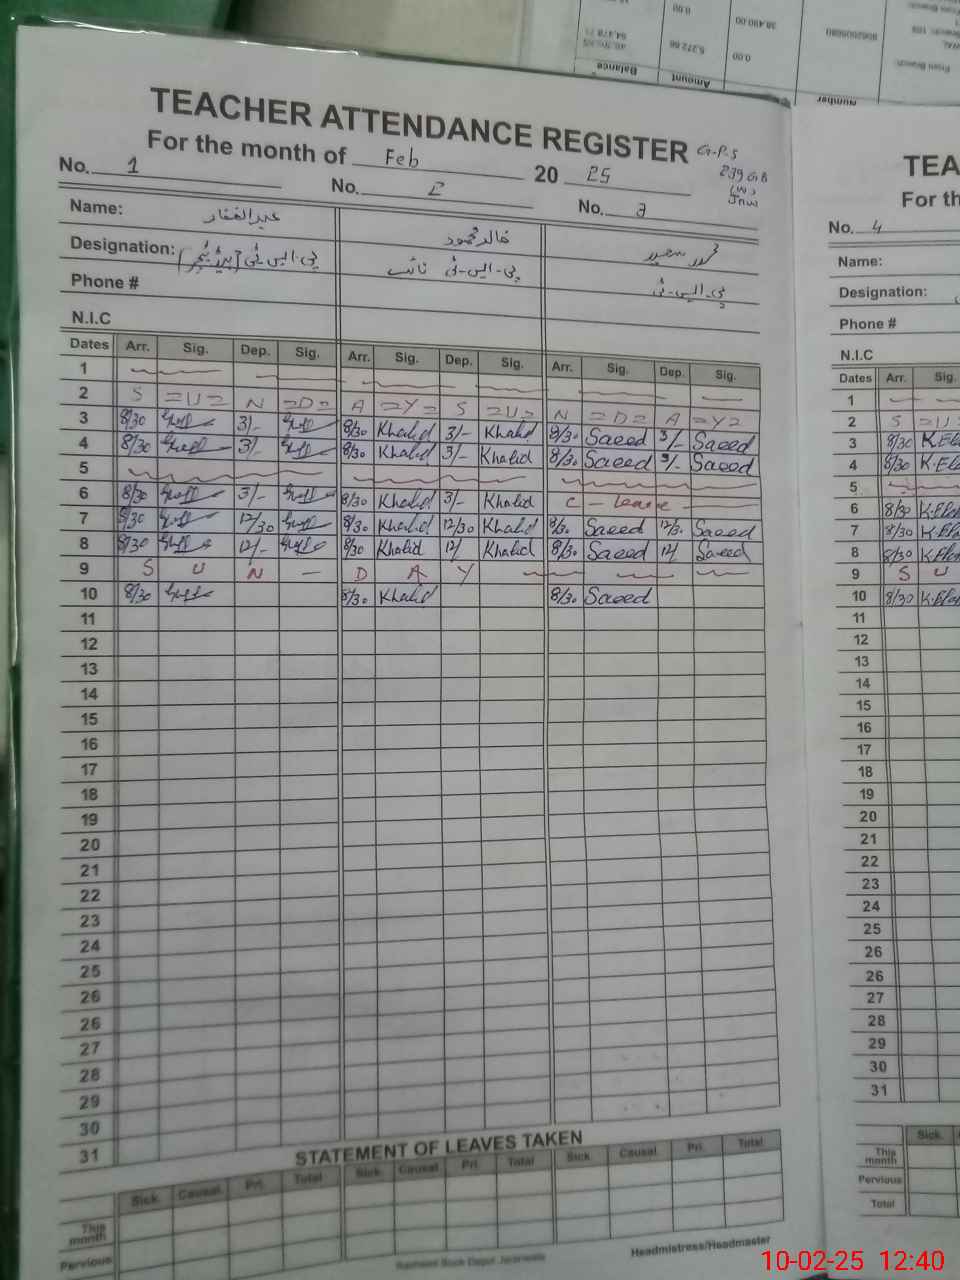 Balance
Amount
Number
0.00
5,272.66
0.00
38,490.00
From Branch
TEACHER ATTENDANCE REGISTER G.P.S
For the month of Feb 20 25 239 GB
(W)
Jnw
No. 1 No. 2 No. 3
Name: عبدالغفار خالد محمود محمد سعید
Designation: پی-ایس-ٹی پی-ایس-ٹی نائب پی-ایس-ٹی
Phone #
N.I.C
Dates Arr. Sig. Dep. Sig. Arr. Sig. Dep. Sig. Arr. Sig. Dep. Sig.
1
2 S =U= N =D= A =Y= S =U= N =D= A =Y=
3 8/30 3/- 8/30 Khalid 3/- Khalid 8/30 Saeed 3/- Saeed
4 8/30 3/- 8/30 Khalid 3/- Khalid 8/30 Saeed 3/- Saeed
5
6 8/30 3/- 8/30 Khalid 3/- Khalid C - Leave
7 8/30 12/30 8/30 Khalid 12/30 Khalid 8/30 Saeed 12/30 Saeed
8 8/30 12/- 8/30 Khalid 12/ Khalid 8/30 Saeed 12/ Saeed
9 S U N - D A Y
10 8/30 8/30 Khalid 8/30 Saeed
11
12
13
14
15
16
17
18
19
20
21
22
23
24
25
26
26
27
28
29
30
31
STATEMENT OF LEAVES TAKEN
Sick. Causal. Pri. Total Sick. Causal. Pri. Total Sick. Causal. Pri. Total
This month
Pervious
Rasheed Book Depot Jaranwala Headmistress/Headmaster
TEA
For th
No. 4
Name:
Designation:
Phone #
N.I.C
Dates Arr. Sig.
1
2 S =U=
3 8/30
4 8/30
5
6 8/30
7 8/30
8 8/30
9 S U
10 8/30
11
12
13
14
15
16
17
18
19
20
21
22
23
24
25
26
26
27
28
29
30
31
Sick.
This month
Pervious
Total
10-02-25 12:40